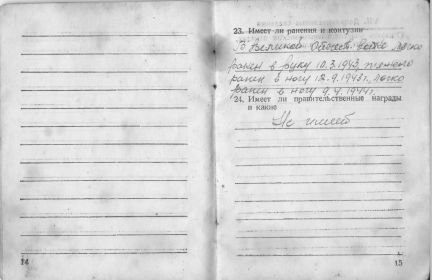 23. Имеет ли ранения и контузии
В Великой Отечест. войне легко
ранен в руку 10.3.1943, тяжело
ранен в ногу 12.9.1943 г, легко
ранен в ногу 9.4.1944 г.
24. Имеет ли правительственные награды
и какие
Не имеет
14
15